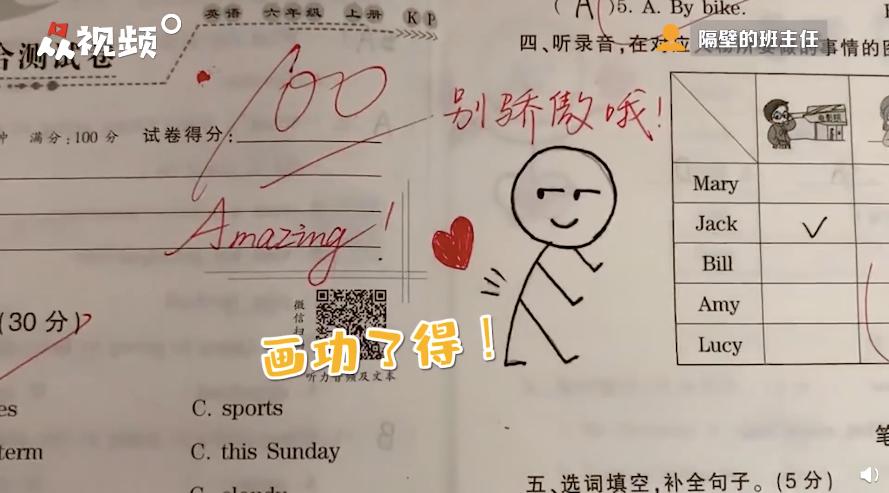 众视频
隔壁的班主任
英语 六年级 上册 KP
合测试卷
满分:100 分 试卷得分:
100
Amazing!
(30 分)
微
信
扫
听力音频及文本
画功了得!
C. sports
term
C. this Sunday
别骄傲哦!
(A)5. A. By bike.
四、听录音,在对应
事情的图
电影院
Mary
Jack
Bill
Amy
Lucy
笔
五、选词填空,补全句子。(5 分)